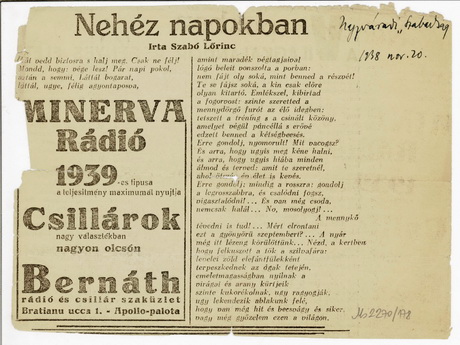 Nehéz napokban
Irta Szabó Lőrinc
Nagyváradi „Szabadság
1938 nov. 20.
vedd biztosra s halj meg. Csak ne félj!
Mondd, hogy: vége lesz! Pár napi pokol,
aztán a semmi. Láttál bogarat,
láttál, ugye, félig agyontaposva,
MINERVA
Rádió
1939-es tipusa
a teljesitmény maximumát nyujtja
Csillárok
nagy választékban
nagyon olcsón
Bernáth
rádió és csillár szaküzlet
Bratianu ucca 1. - Apollo-palota
amint maradék végtagjaival
lógó beleit vonszolta a porban:
nem fájt oly soká, mint benned a részvét!
Te se fájsz soká, a kin csak előre
olyan kitartó. Emlékszel, kibirtad
a fogorvost: szinte szeretted a
mennydörgő furót az élő idegben:
tetszett a tréning s a csinált közöny,
amelyet végül páncéllá s erővé
edzett benned a kétségbeesés.
Erre gondolj, nyomorult! Mit pacogsz?
És arra, hogy ugyis meg kéne halni,
és arra, hogy ugyis hiába minden
álmod és terved: amit te szeretnél,
ahoz ötven év élet is kevés.
Erre gondolj; mindig a rosszra: gondolj
a legrosszabbra, és csalódni fogsz,
nigasztalódni!... És van még csoda,
nemcsak halál... No, mosolyogj!...
A mennykő
tévedni is tud!... Mért elrontani
ezt a gyönyörü szeptembert?... A nyár
még itt lézeng körülöttünk... Nézd, a kertben
hogy felkuszott a tök a szilvafára:
levelei zöld elefántfülekként
terpeszkednek az ágak tetején,
emeletmagasságban nyilnak a
virágai és arany kürtjeik
szinte kukorékolnak, ugy ragyogják,
ugy lekendezik ablakunk felé,
hogy van még hit és becsvágy és siker,
vagy még győzelem ezen a világon.